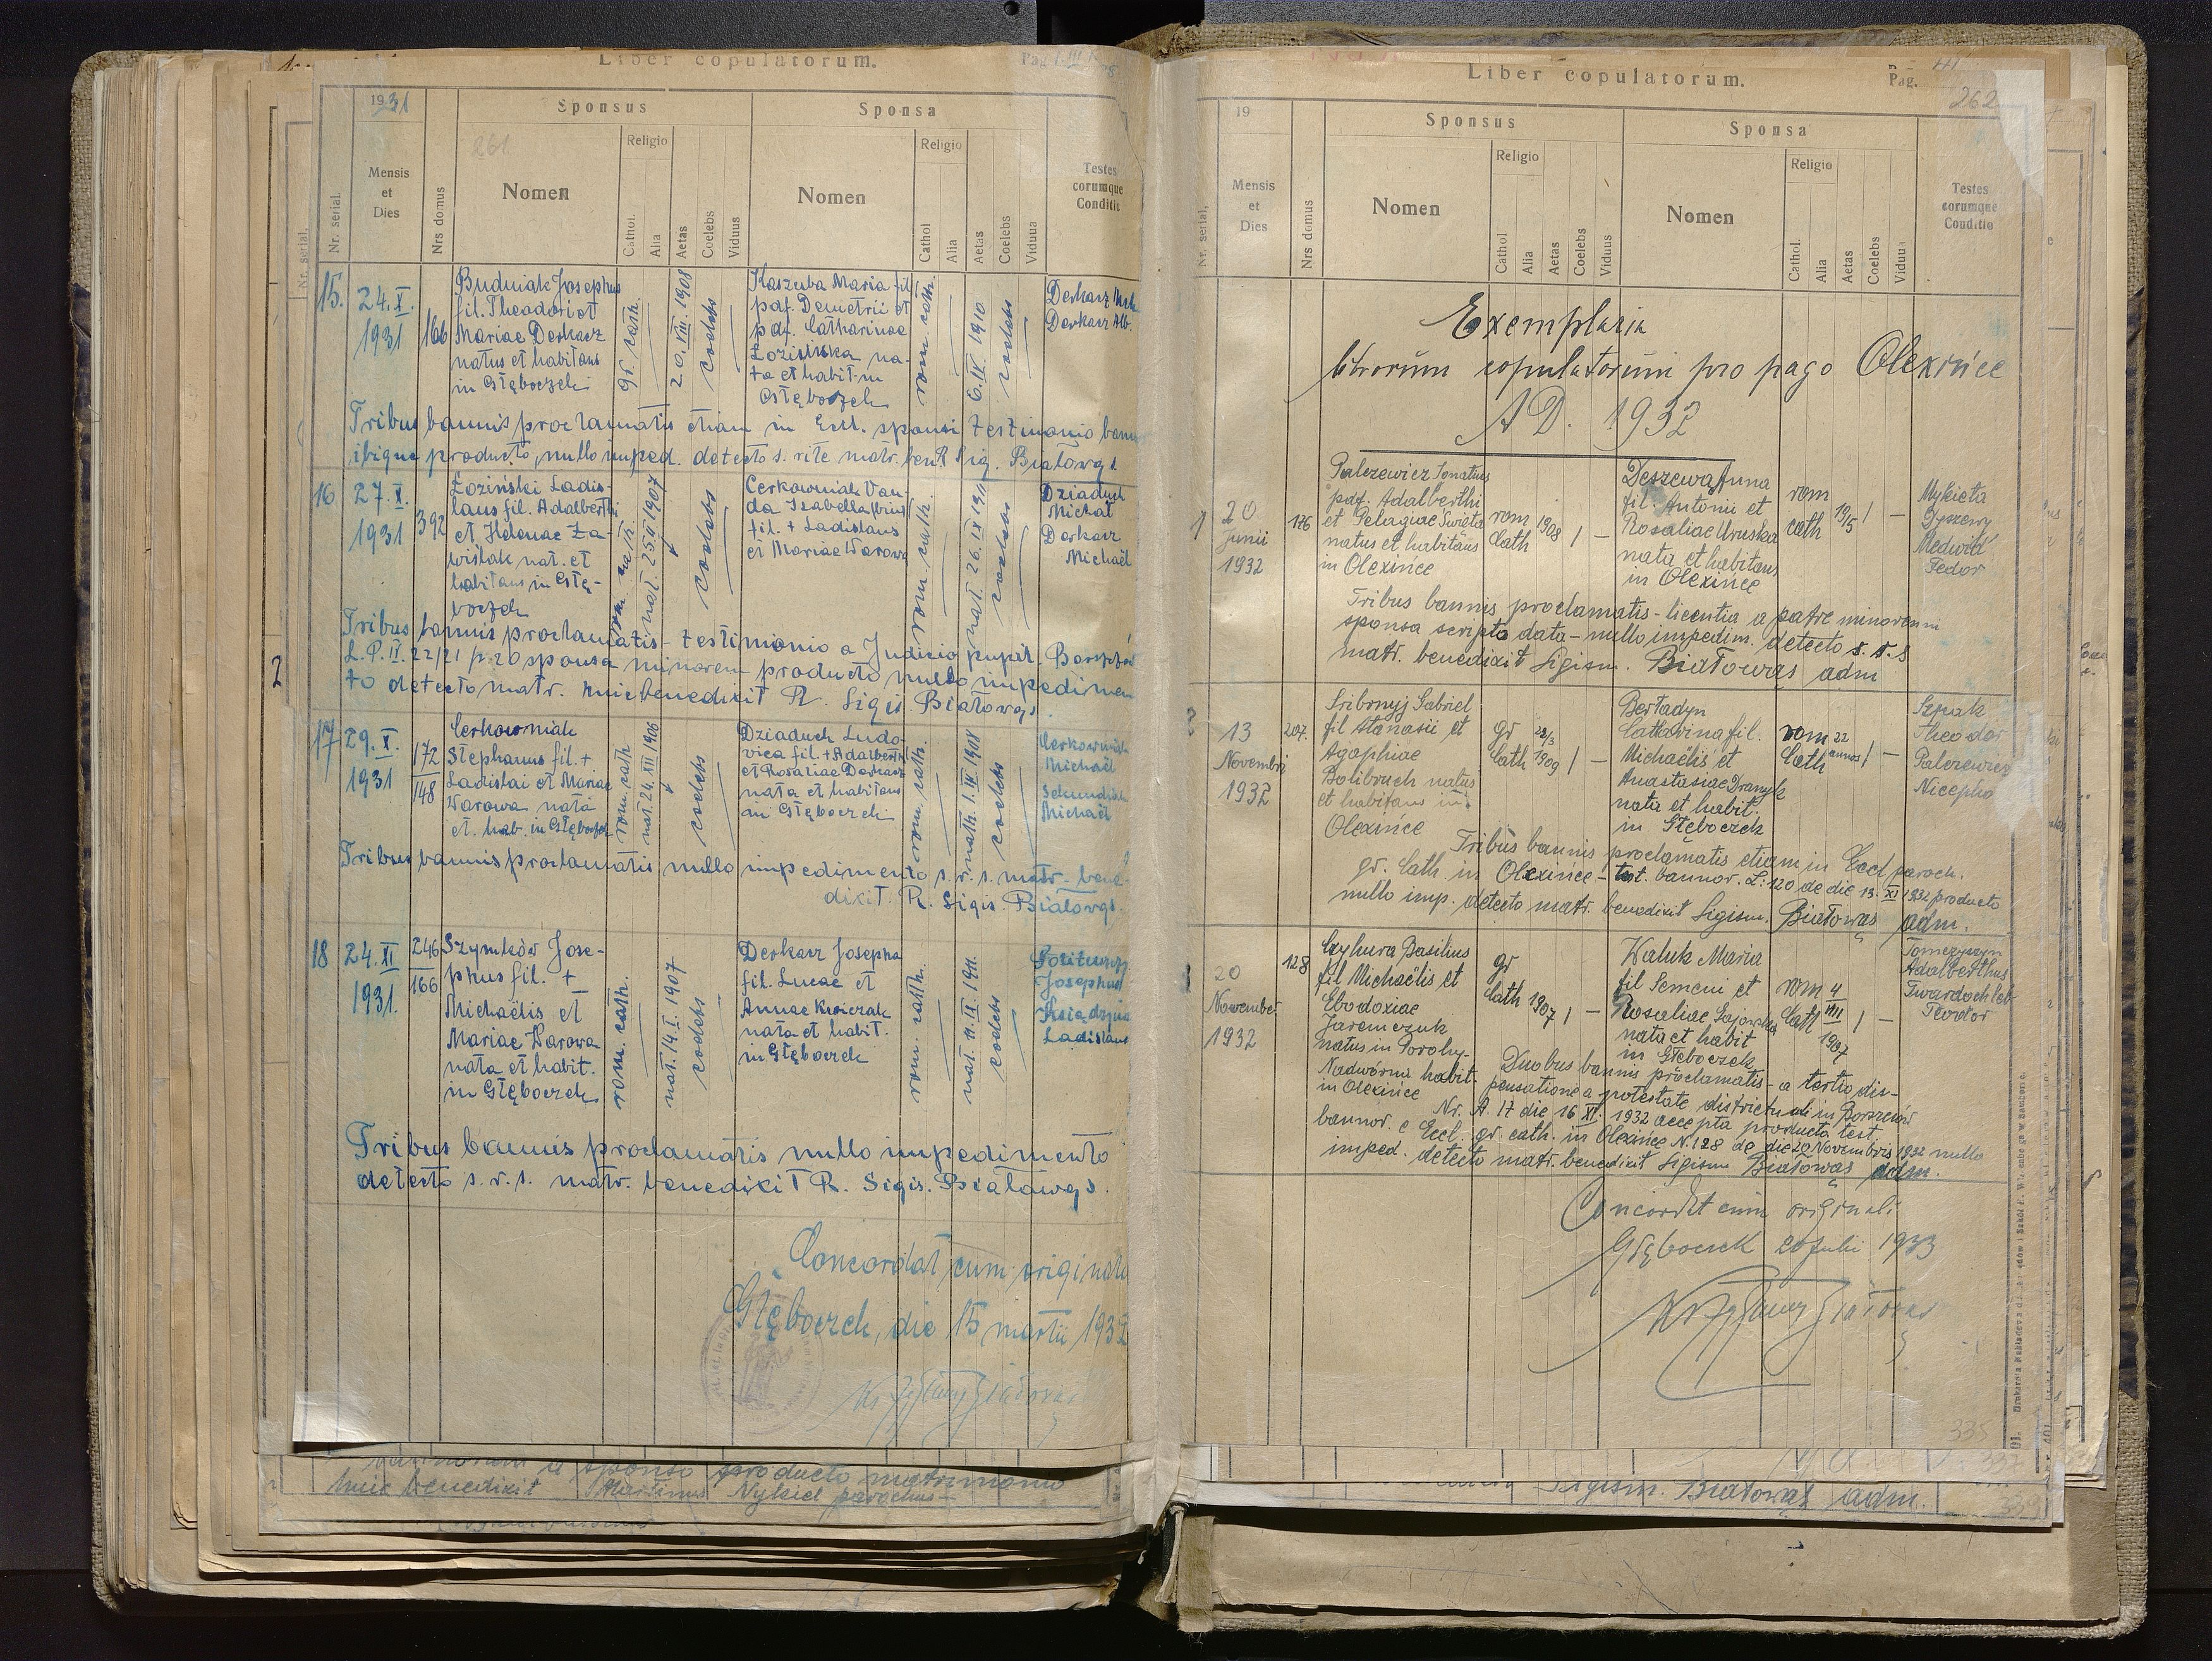 Liber copulatorum.
Pag.
1931
Sponsus
Sponsa
261
Religio
Religio
Nr. serial.
Mensis
et
Dies
Nrs domus
Nomen
Cathol.
Alia
Aetas
Coelebs
Viduus
Nomen
Cathol
Alia
Aetas
Coelebs
Vidua
Testes
eorumque
Conditio
15.
24.X.
1931
166
Budniak Josephus
fil. Theodori et
Mariae Derkacz
natus et habitans
in Głęboczek
gr. cath.
20.VIII.1908
coelebs
Kaszuba Maria fil
pdf. Demetrii et
pdf. Catharinae
Łozińska na-
ta et habit in
Głęboczek
rom. cath.
6.IV.1910
coelebs
Derkacz Mich
Derkacz Alb.
Tribus bannis proclamatis etiam in Eccl. sponsi testimonio bann
ibique producto, nullo imped. detecto s. rite matr. ben. R. Sig. Białowąs
16
27.X.
1931
392
Łoziński Ladis-
laus fil. Adalberthi
et Helenae Za-
wiślak nat. et
habitans in Głę-
boczek
rom. cath.
nat. 25.VI 1907
coelebs
Cerkowniak Van-
da Isabella
fil. + Ladislaus
et Mariae Warowa
rom. cath.
nat. 26.IX 1911
coelebs
Dziaduch
Michał
Derkacz
Michaël
Tribus bannis proclamatis - testimonio a Judicio pupil. Borszczów
L.P.IV.22/21 p. 20 sponsa minorem producto nullo impedimen
to detecto matr. huic benedixit R. Sigis. Białowąs.
17
29.X.
1931
172
148
Cerkowniak
Stephanus fil. +
Ladislai et Mariae
Warowa nata
et. hab. in Głęboczek
rom. cath
nat. 24.XII 1906
coelebs
Dziaduch Ludo-
vica fil. + Adalberthi
et Rosaliae Derkacz
nata et habitans
in Głęboczek
rom. cath.
nath. 1.IV.1908
coelebs
Cerkowniak
Michaël
Michaël
Tribus bannis proclamatis nullo impedimento s.r.s. matr. bene-
dixit. R. Sigis. Białowąs.
18
24.XI
1931.
246
166
Szymków Jose-
phus fil. +
Michaëlis et
Mariae Warowa
nata et habit.
in Głęboczek
rom. cath.
nat. 14.I.1907
coelebs
Derkacz Josepha
fil. Lucae et
Annae
nata et habit.
in Głęboczek
rom. cath.
coelebs
Josephus
Ladislaus
Tribus bannis proclamatis nullo impedimento
detecto s.r.s. matr. benedixit R. Sigis. Białowąs.
Concordat cum originali
Głęboczek, die 15 martii 1932
2
bannorum a sponso producto matrimonio
huic benedixit Martinus Nykiel parochus
Liber copulatorum.
Pag.
262
19
Sponsus
Sponsa
Religio
Religio
Nr. serial.
Mensis
et
Dies
Nrs domus
Nomen
Cathol
Alia
Aetas
Coelebs
Viduus
Nomen
Cathol.
Alia
Aetas
Coelebs
Vidua
Testes
eorumque
Conditio
Exemplaria
librorum copulatorum pro pago Olexińce
AD. 1932
1
20
Junii
1932
176
Palczewicz Ignatius
pdf. Adalberthi
et Pelagiae Święta
natus et habitans
in Olexińce
rom
cath
1908
Deszewa Anna
fil. Antonii et
Rosaliae Uruska
nata et habitans
in Olexińce
rom
cath
Mykieta
Medwid'
Fedor
Tribus bannis proclamatis - licentia a patre minorenni
sponsa scripta data - nullo impedim. detecto s.r.s
matr. benedixit Sigism. Białowąs adm
2
13
Novembri
1932
207.
Sribnyj Gabriel
fil Atanasii et
Agaphiae
Bolibruch natus
et habitans in
Olexińce
gr
cath
22/3
1909
Bertadyn
Catharina fil.
Michaëlis et
Anastasiae Dranyk
nata et habit
in Głęboczek
rom
Cath
22
annos
Szpak
Theodor
Palczewicz
Nicepho
Tribus bannis proclamatis etiam in Eccl paroch.
gr. Cath. in Olexińce - test. bannor. L: 120 de die 13.XI 1932 producto
nullo imp. detecto matr. benedixit Sigism. Białowąs adm.
3
20
Novembri
1932
128
Czyhura Basilius
fil Michaëlis et
Ebodoxiae
Jaremczuk
natus in Porohy-
Nadwórna habit.
in Olexińce
gr
Cath
1907
Waluk Maria
fil Semeni et
Rosaliae Sajowska
nata et habit
in Głęboczek
rom
Cath
4
VIII
1907
Tomczyszyn
Adalberthus
Twardochleb
Teodor
Duobus bannis proclamatis - a tertio dis-
pensatione a potestate districtuali in Borszczów
Nr. A. 17 die 16 XI. 1932 accepta producto test.
bannor. e Eccl. gr. cath. in Olexińce N.128 de die 20 Novembris 1932 nullo
imped. detecto matr. benedixit Sigism Białowąs adm.
Concordat cum originali
Głęboczek 20 Julii 1933
335
Sigism. Białowąs adm.